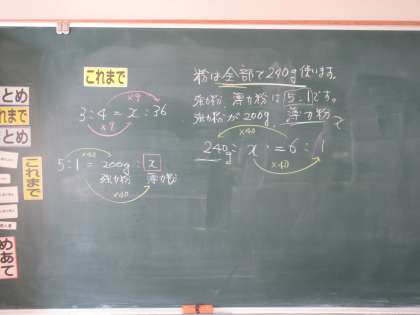 これまで
×9
3:4 = x:36
×9
×40
5:1 = 200g : x
強力粉 薄力粉
×40
粉は全部で240g使います。
強力粉、薄力粉は5:1です。
強力粉が200g、薄力粉
×40
240g : x = 6 : 1
×40
とめ
れまで
とめ
これまで
めあて